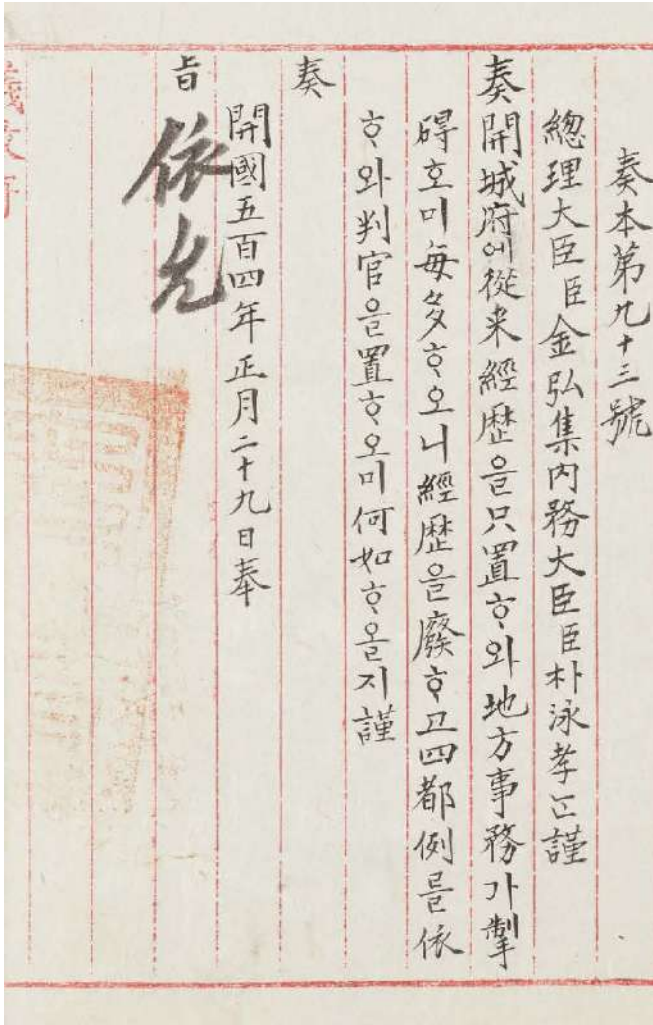 奏本第九十三號
總理大臣臣金弘集內務大臣臣朴泳孝는謹
奏開城府에從来經歷을只置ᄒᆞ와地方事務가掣
碍호미每多ᄒᆞ오니經歷을廢ᄒᆞ고四都例를依
ᄒᆞ와判官을置ᄒᆞ오미何如ᄒᆞ올지謹
奏
開國五百四年正月二十九日奉
旨依允
議政府